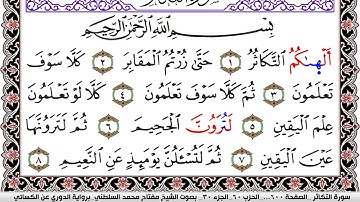 بِسْمِ ٱللَّهِ ٱلرَّحْمَٰنِ ٱلرَّحِيمِ
أَلْهَىٰكُمُ ٱلتَّكَاثُرُ ١ حَتَّىٰ زُرْتُمُ ٱلْمَقَابِرَ ٢ كَلَّا سَوْفَ
تَعْلَمُونَ ٣ ثُمَّ كَلَّا سَوْفَ تَعْلَمُونَ ٤ كَلَّا لَوْ تَعْلَمُونَ
عِلْمَ ٱلْيَقِينِ ٥ لَتُرَوُنَّ ٱلْجَحِيمَ ٦ ثُمَّ لَتَرَوُنَّهَا
عَيْنَ ٱلْيَقِينِ ٧ ثُمَّ لَتُسْـَٔلُنَّ يَوْمَئِذٍ عَنِ ٱلنَّعِيمِ ٨
سورة التكاثر ..الصفحة ٦٠٠... الحزب ٦٠ .الجزء ٣٠ .. بصوت الشيخ مفتاح محمد السلطني .برواية الدوري عن الكسائي